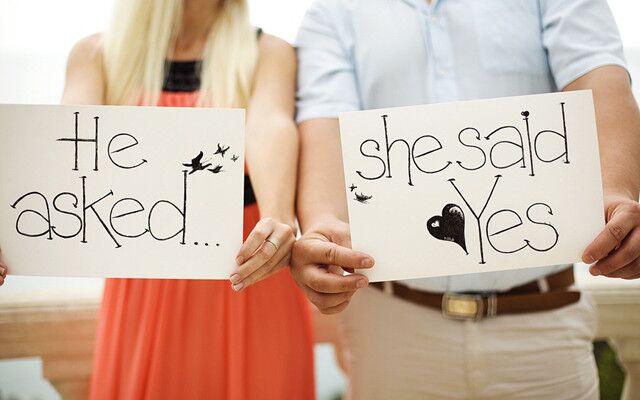 He
asked...
she said
Yes